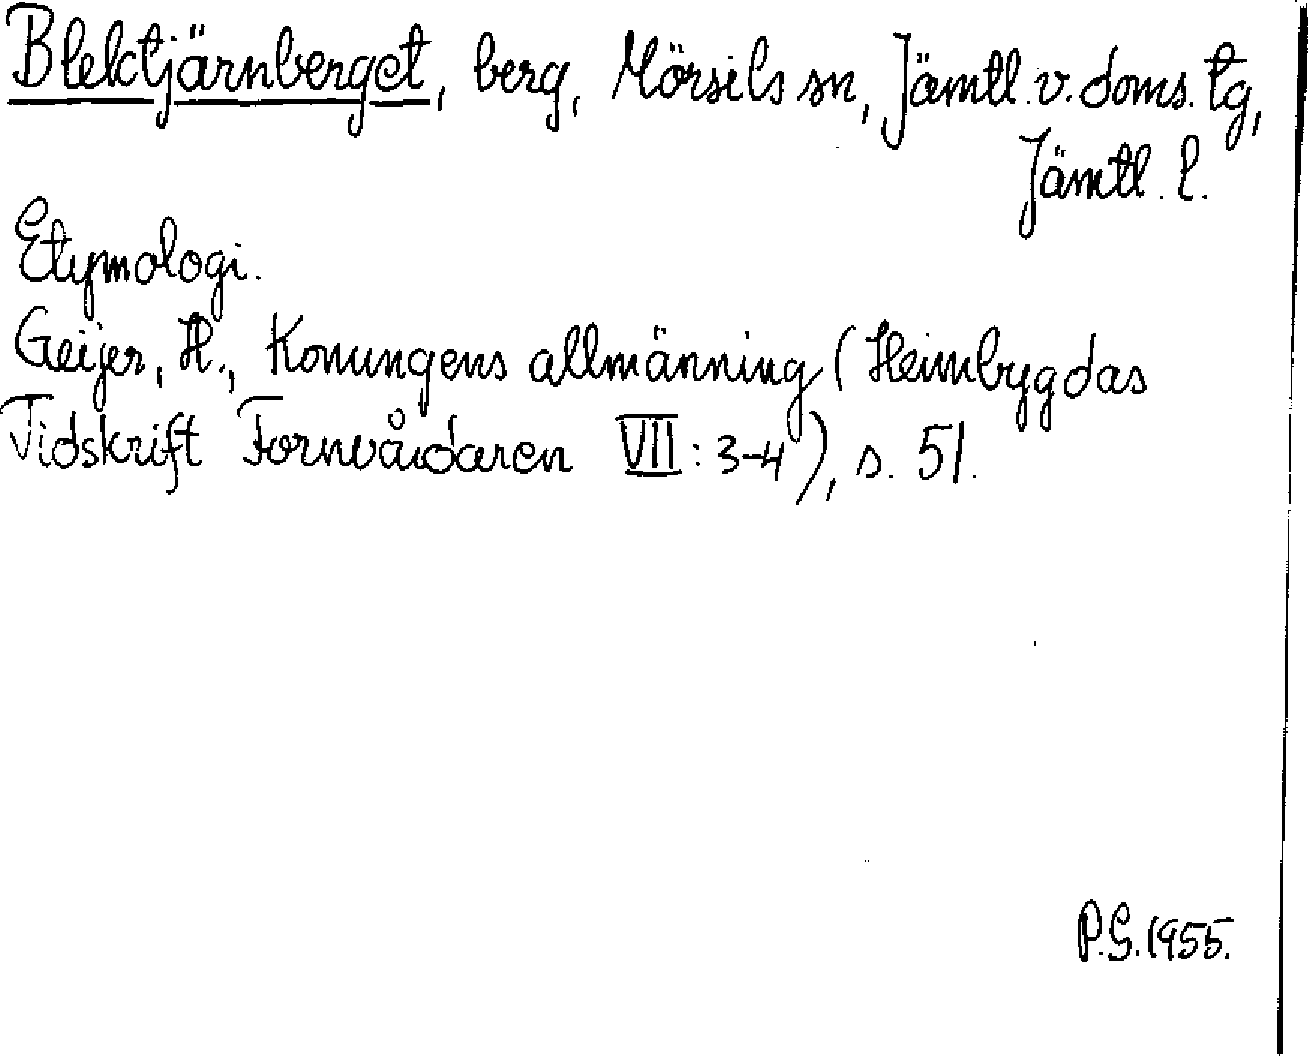 Blektjärnberget, berg, Mörsils sn, Jämtl. v. doms. tg,
Jämtl. l.
Etymologi.
Geijer, H., Konungens allmänning (Heimbygdas
Tidskrift Fornvårdaren VII: 3-4), s. 51.
P.G. 1955.